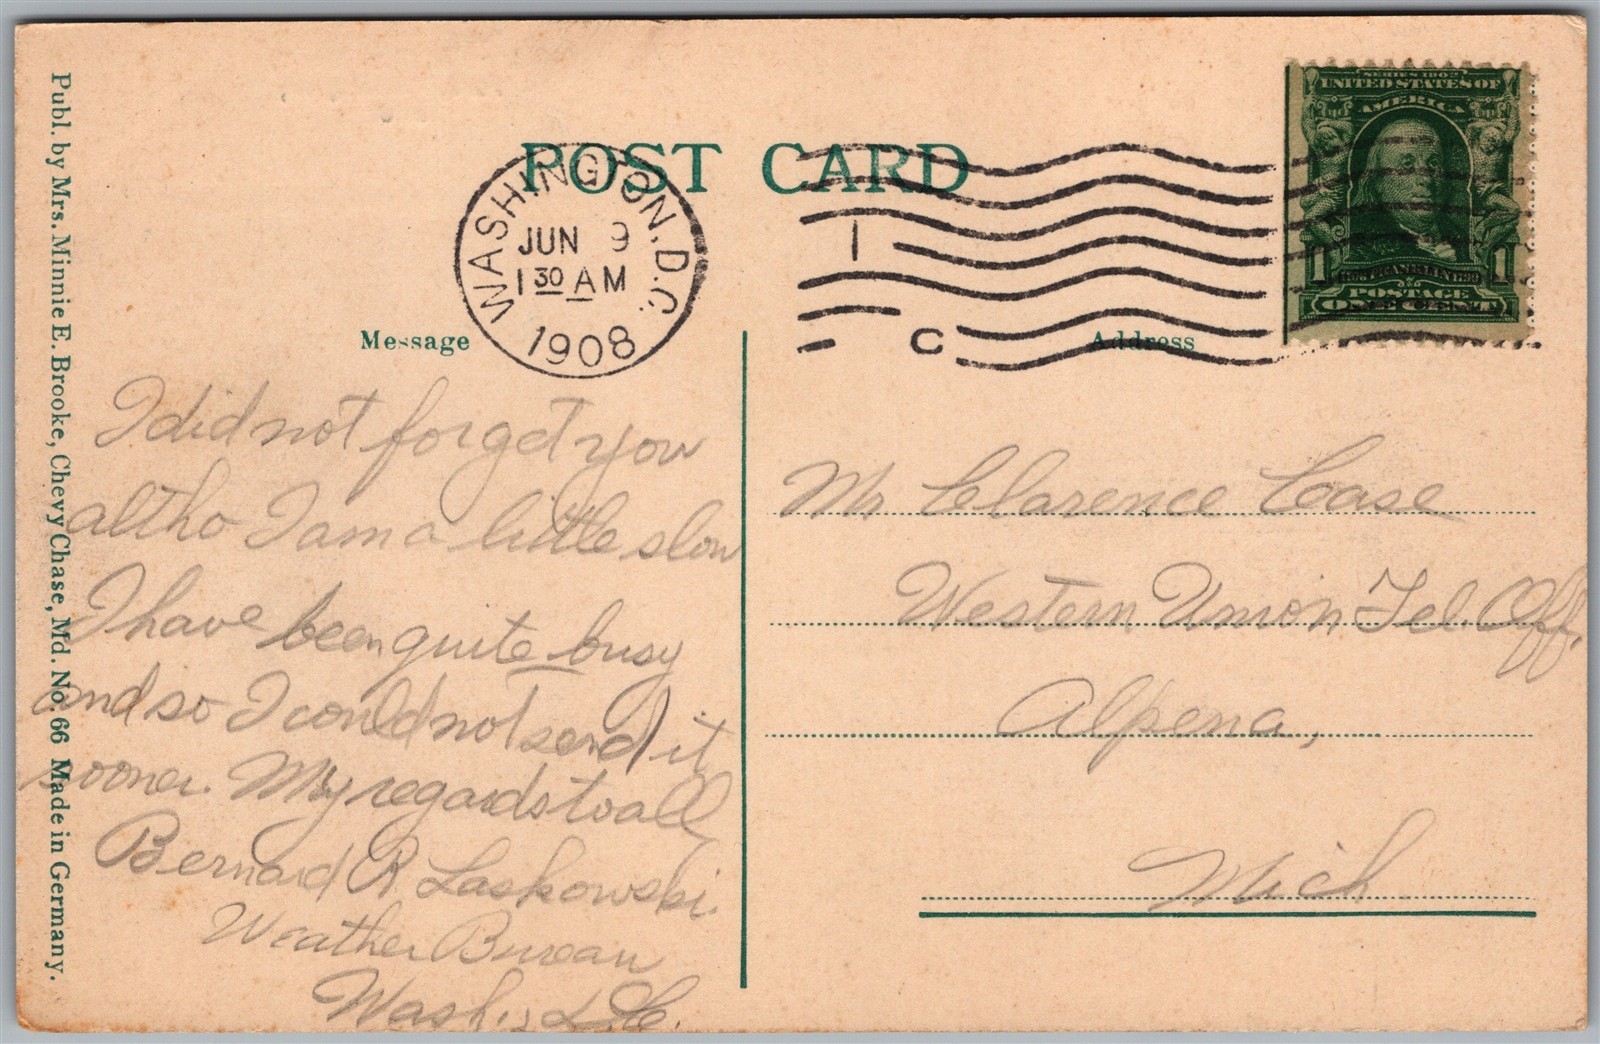 POST CARD
WASHINGTON, D.C.
JUN 9
1 30 AM
1908
1
C
SERIES 1902
UNITED STATES OF
AMERICA
1 1
POSTAGE
ONE CENT
Message
Address
Publ. by Mrs. Minnie E. Brooke, Chevy Chase, Md. No. 66 Made in Germany.
I did not forget you
altho I am a little slow
I have been quite busy
and so I could not send it
sooner. My regards to all
Bernard R Laskowski.
Weather Bureau
Wash., D.C.
Mr Clarence Case
Western Union Tel. Off.
Alpena,
Mich